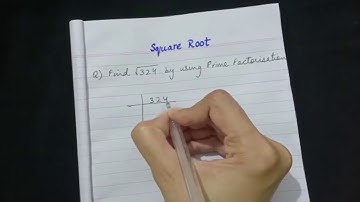 Square Root
Q) Find √324 by using Prime Factorisation
324